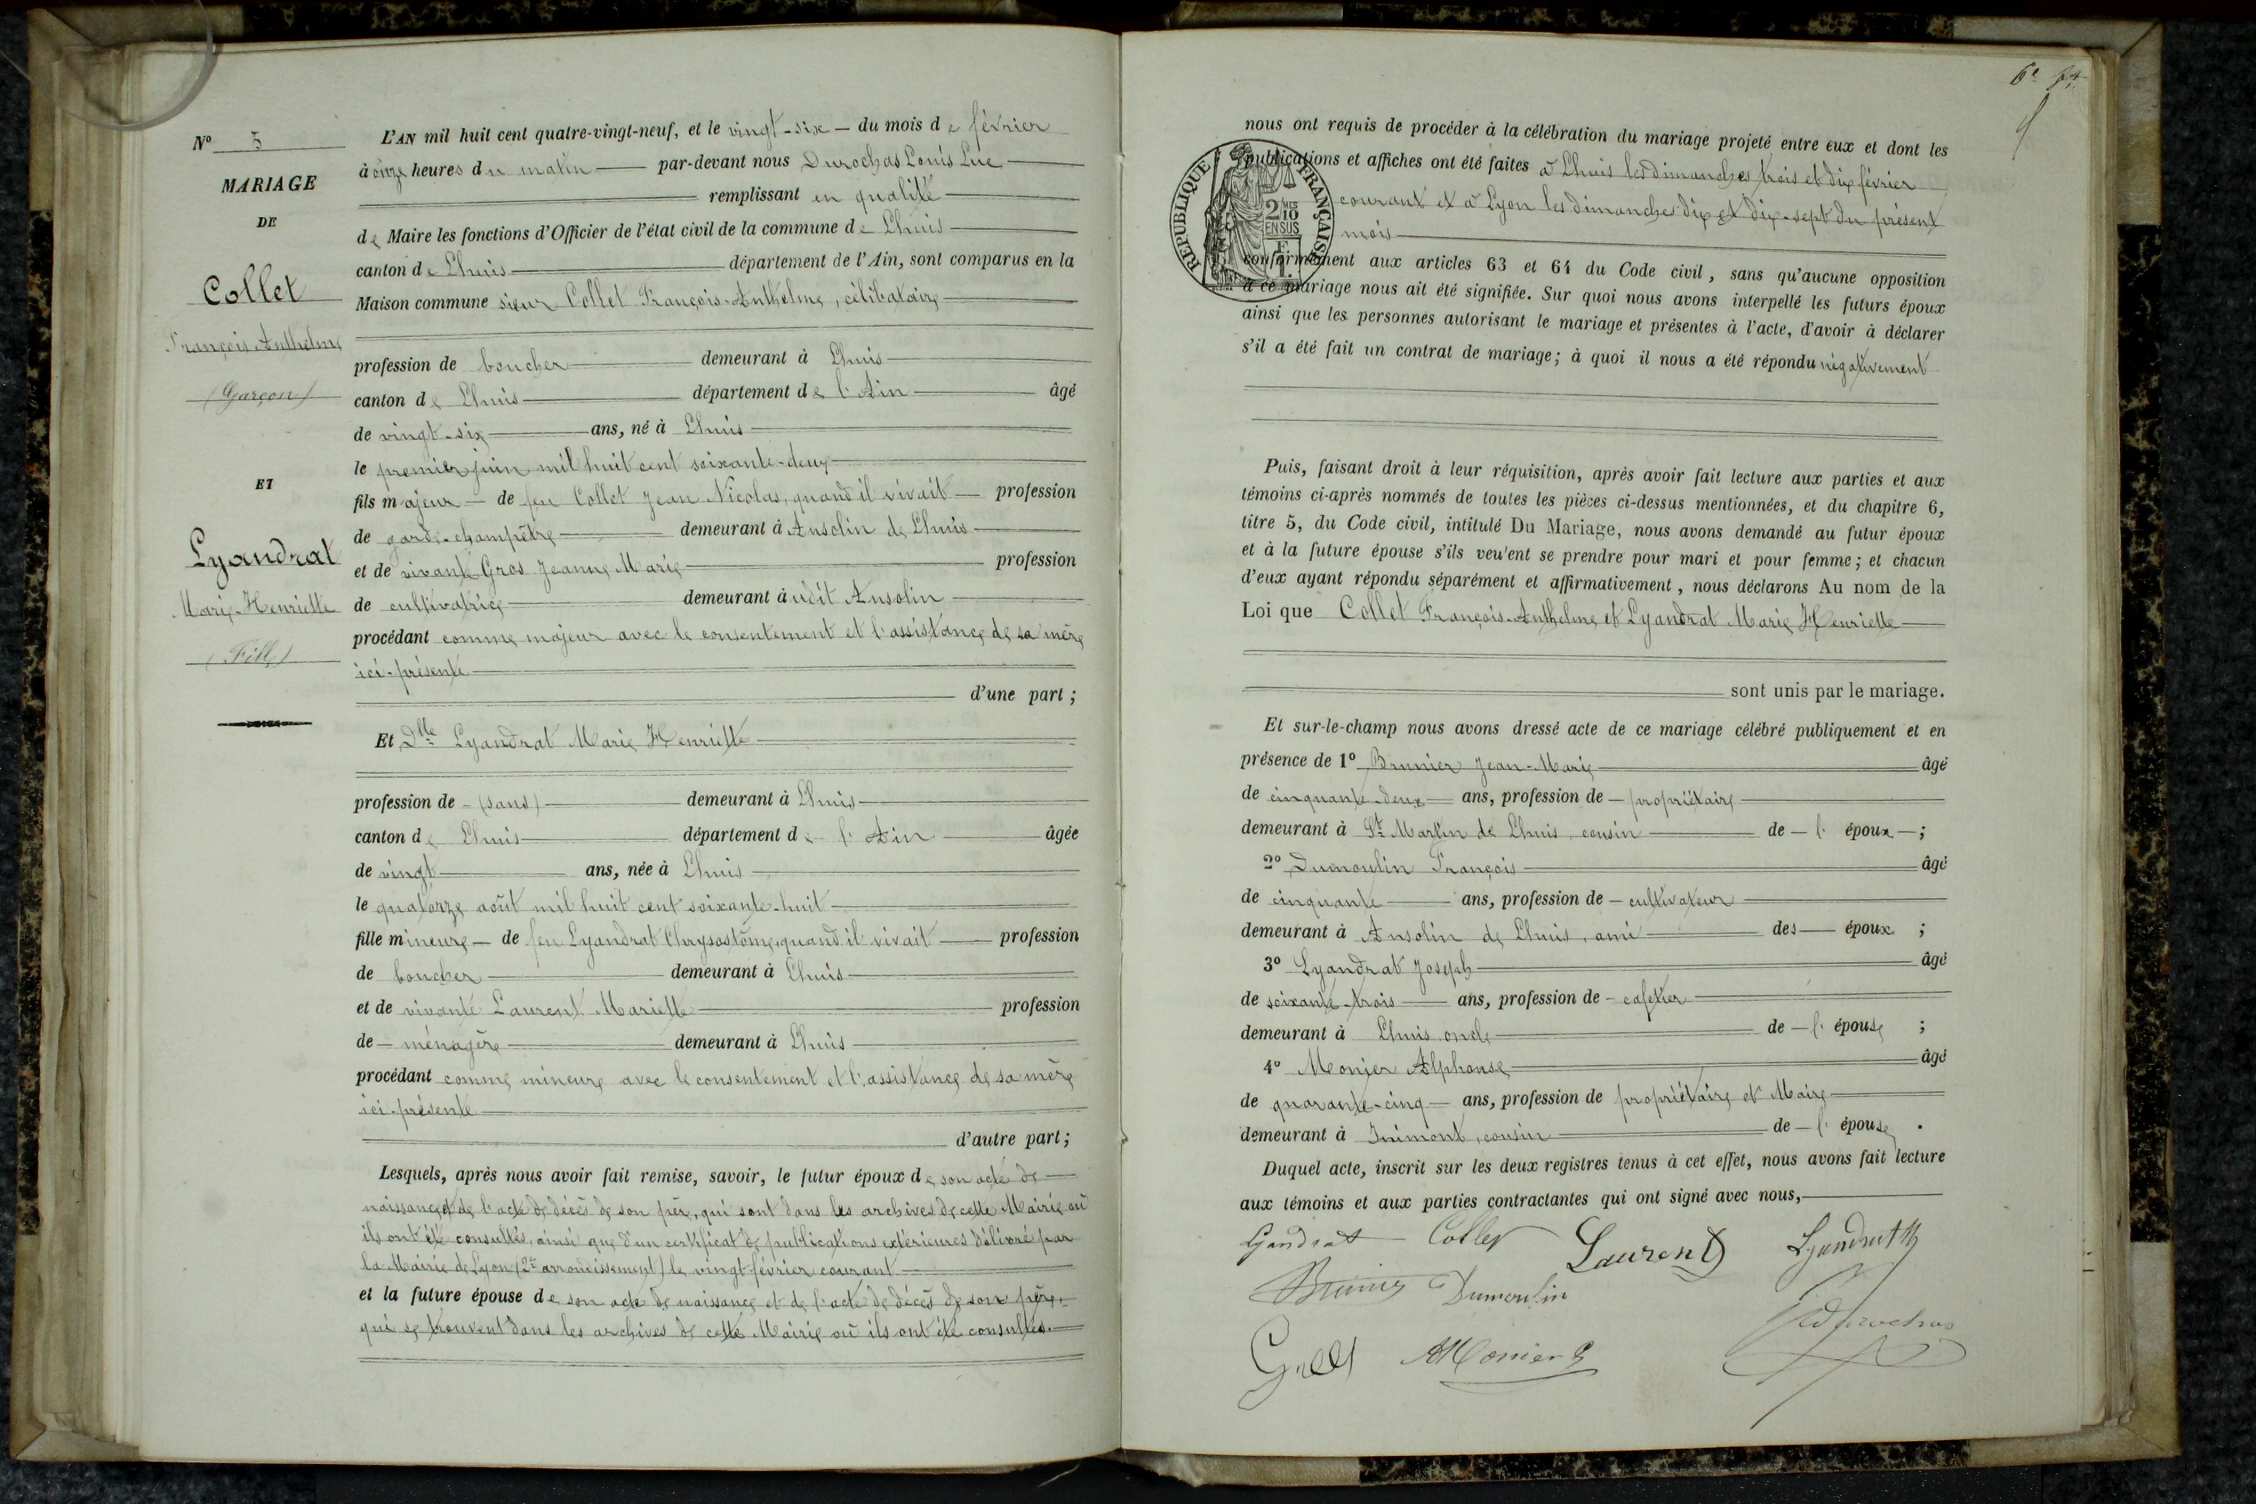 N° 5
MARIAGE
DE
Collet
François-Anthelme
(Garçon)
ET
Lyandrat
Marie-Henriette
(Fille)
L'AN mil huit cent quatre-vingt-neuf, et le vingt-six du mois de février
à onze heures du matin par-devant nous Durochas Louis Luc
remplissant en qualité
de Maire les fonctions d'Officier de l'état civil de la commune de Lhuis
canton de Lhuis département de l'Ain, sont comparus en la
Maison commune sieur Collet François-Anthelme, célibataire
profession de boucher demeurant à Lhuis
canton de Lhuis département de l'Ain âgé
de vingt-six ans, né à Lhuis
le premier juin mil huit cent soixante-deux
fils majeur de feu Collet Jean Nicolas, quand il vivait profession
de garde-champêtre demeurant à Ansolin de Lhuis
et de vivante Gros Jeanne Marie profession
de cultivatrice demeurant à udit Ansolin
procédant comme majeur avec le consentement et l'assistance de sa mère
ici-présente
d'une part ;
Et Dlle Lyandrat Marie Henriette
profession de (sans) demeurant à Lhuis
canton de Lhuis département de l'Ain âgée
de vingt ans, née à Lhuis
le quatorze août mil huit cent soixante-huit
fille mineure de feu Lyandrat Chrysostôme, quand il vivait profession
de boucher demeurant à Lhuis
et de vivante Laurent Mariette profession
de ménagère demeurant à Lhuis
procédant comme mineure avec le consentement et l'assistance de sa mère
ici-présente
d'autre part ;
Lesquels, après nous avoir fait remise, savoir, le futur époux de son acte de
naissance et de l'acte de décès de son père, qui sont dans les archives de cette Mairie où
ils ont été consultés, ainsi que d'un certificat de publications extérieures délivré par
la Mairie de Lyon (2e arrondissement) le vingt février courant
et la future épouse de son acte de naissance et de l'acte de décès de son père,
qui se trouvent dans les archives de cette Mairie où ils ont été consultés.
6e
nous ont requis de procéder à la célébration du mariage projeté entre eux et dont les
publications et affiches ont été faites à Lhuis les dimanches trois et dix février
courant et à Lyon les dimanches dix et dix-sept du présent
mois
REPUBLIQUE FRANÇAISE
2/10
EN SUS
conformément aux articles 63 et 64 du Code civil, sans qu'aucune opposition
à ce mariage nous ait été signifiée. Sur quoi nous avons interpellé les futurs époux
ainsi que les personnes autorisant le mariage et présentes à l'acte, d'avoir à déclarer
s'il a été fait un contrat de mariage ; à quoi il nous a été répondu négativement
Puis, faisant droit à leur réquisition, après avoir fait lecture aux parties et aux
témoins ci-après nommés de toutes les pièces ci-dessus mentionnées, et du chapitre 6,
titre 5, du Code civil, intitulé Du Mariage, nous avons demandé au futur époux
et à la future épouse s'ils veu'ent se prendre pour mari et pour femme ; et chacun
d'eux ayant répondu séparément et affirmativement, nous déclarons Au nom de la
Loi que Collet François-Anthelme et Lyandrat Marie Henriette
sont unis par le mariage.
Et sur-le-champ nous avons dressé acte de ce mariage célébré publiquement et en
présence de 1° Brunier Jean-Marie âgé
de cinquante-deux ans, profession de propriétaire
demeurant à St Martin de Lhuis, cousin de l' époux ;
2° Dumoulin François âgé
de cinquante ans, profession de cultivateur
demeurant à Ansolin de Lhuis, ami des époux ;
3° Lyandrat Joseph âgé
de soixante-trois ans, profession de cafetier
demeurant à Lhuis oncle de l' épouse ;
4° Monier Alphonse âgé
de quarante-cinq ans, profession de propriétaire et Maire
demeurant à Inimont, cousin de l' épouse.
Duquel acte, inscrit sur les deux registres tenus à cet effet, nous avons fait lecture
aux témoins et aux parties contractantes qui ont signé avec nous,
Lyandrat Collet Laurent Lyandrat M
Brunier Dumoulin
Durochas
AMonier